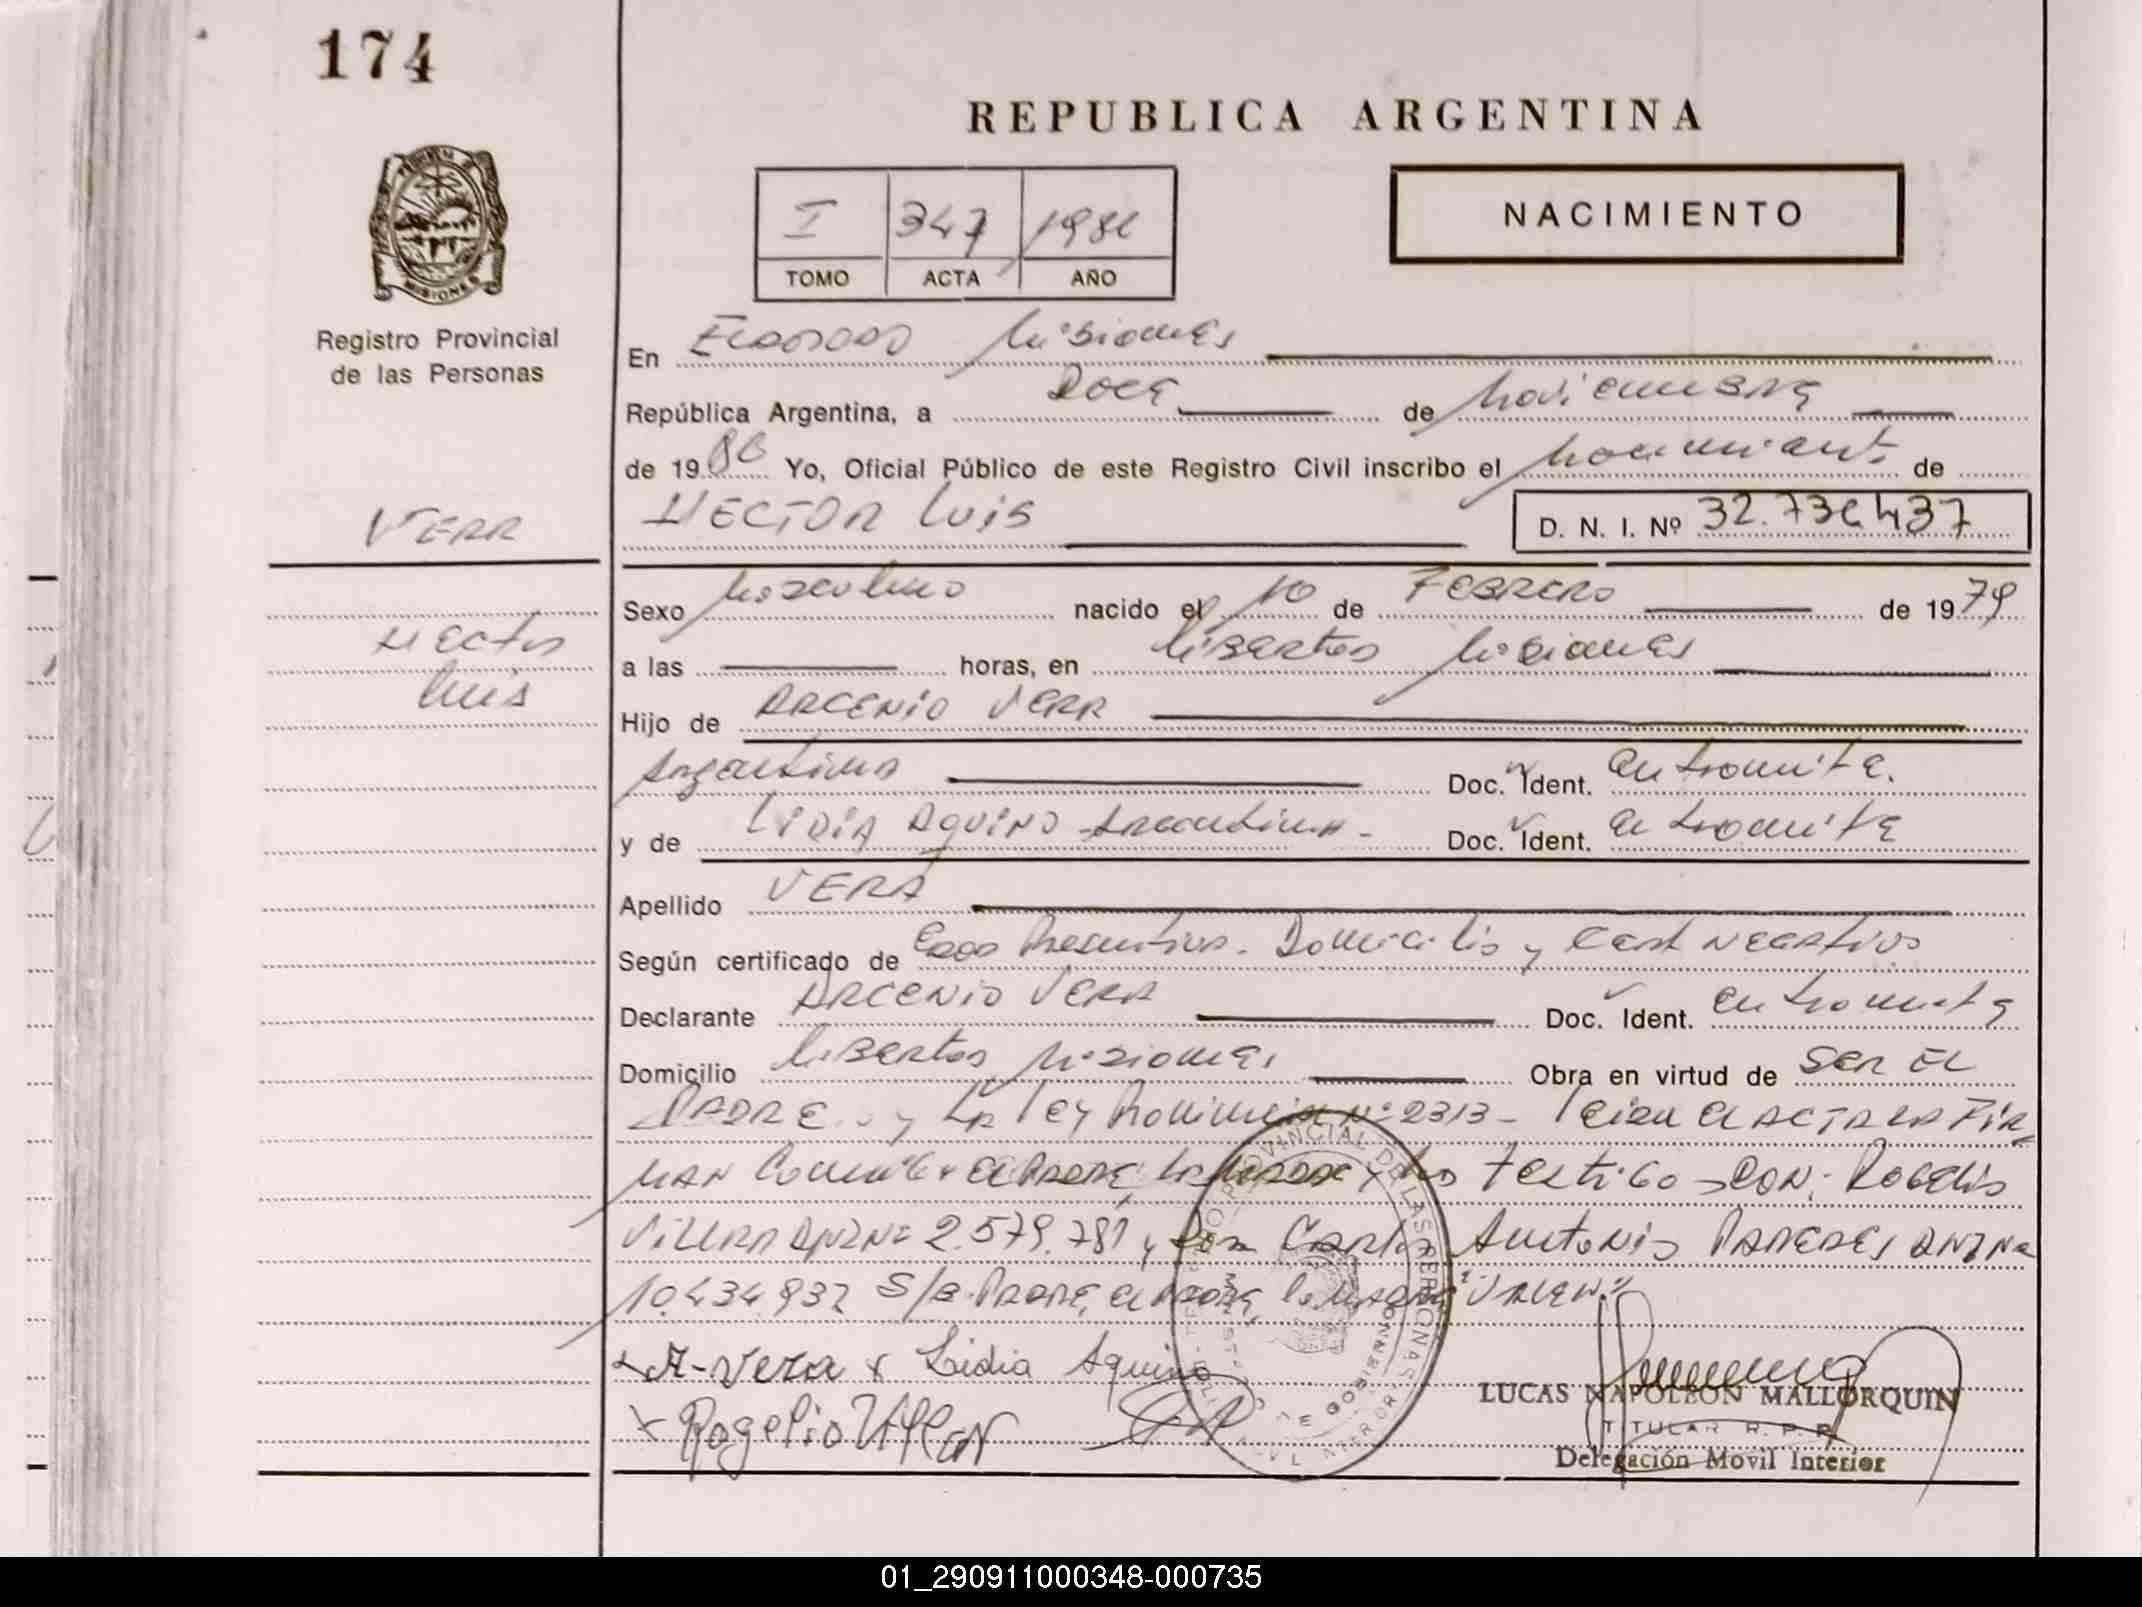 174
REPUBLICA ARGENTINA
NACIMIENTO
I 347 1986
TOMO ACTA AÑO
MISIONES
Registro Provincial
de las Personas
En Eldorado Misiones
República Argentina, a Doce de Noviembre
de 1986 Yo, Oficial Público de este Registro Civil inscribo el Nacimiento de
VERA
HECTOR LUIS
D. N. I. Nº 32.736.437
Sexo Masculino nacido el 10 de FEBRERO de 1979
Hector
Luis
a las horas, en Libertad Misiones
Hijo de ARCENIO VERA
Argentina Doc. Ident. en tramite.
y de LIDIA AQUINO Argentina - Doc. Ident. en tramite
Apellido VERA
Según certificado de Edad Presuntiva. Domicilio y Cert Negativo
Declarante ARCENIO VERA Doc. Ident. en tramite
Domicilio Libertad Misiones Obra en virtud de SER EL
PADRE y LA Ley Provincial Nº 2313 - Leida el ACTA LA FIR
MAN Conmigo el PADRE, LA MADRE y los Testigos DON: Rogelio
Villar DNI Nº 2.579.781 y Don Carlos Antonio PAREDES DNI Nº
10.434.932 S/B. PADRE, el PADRE, la MADRE "VALEN."
A-Vera x Lidia Aquino
x Rogelio Villar
LUCAS NAPOLEON MALLORQUIN
TITULAR R. P. P.
Delegación Movil Interior
PROVINCIAL DE LAS PERSONAS
DE GOBIERNO
01_290911000348-000735